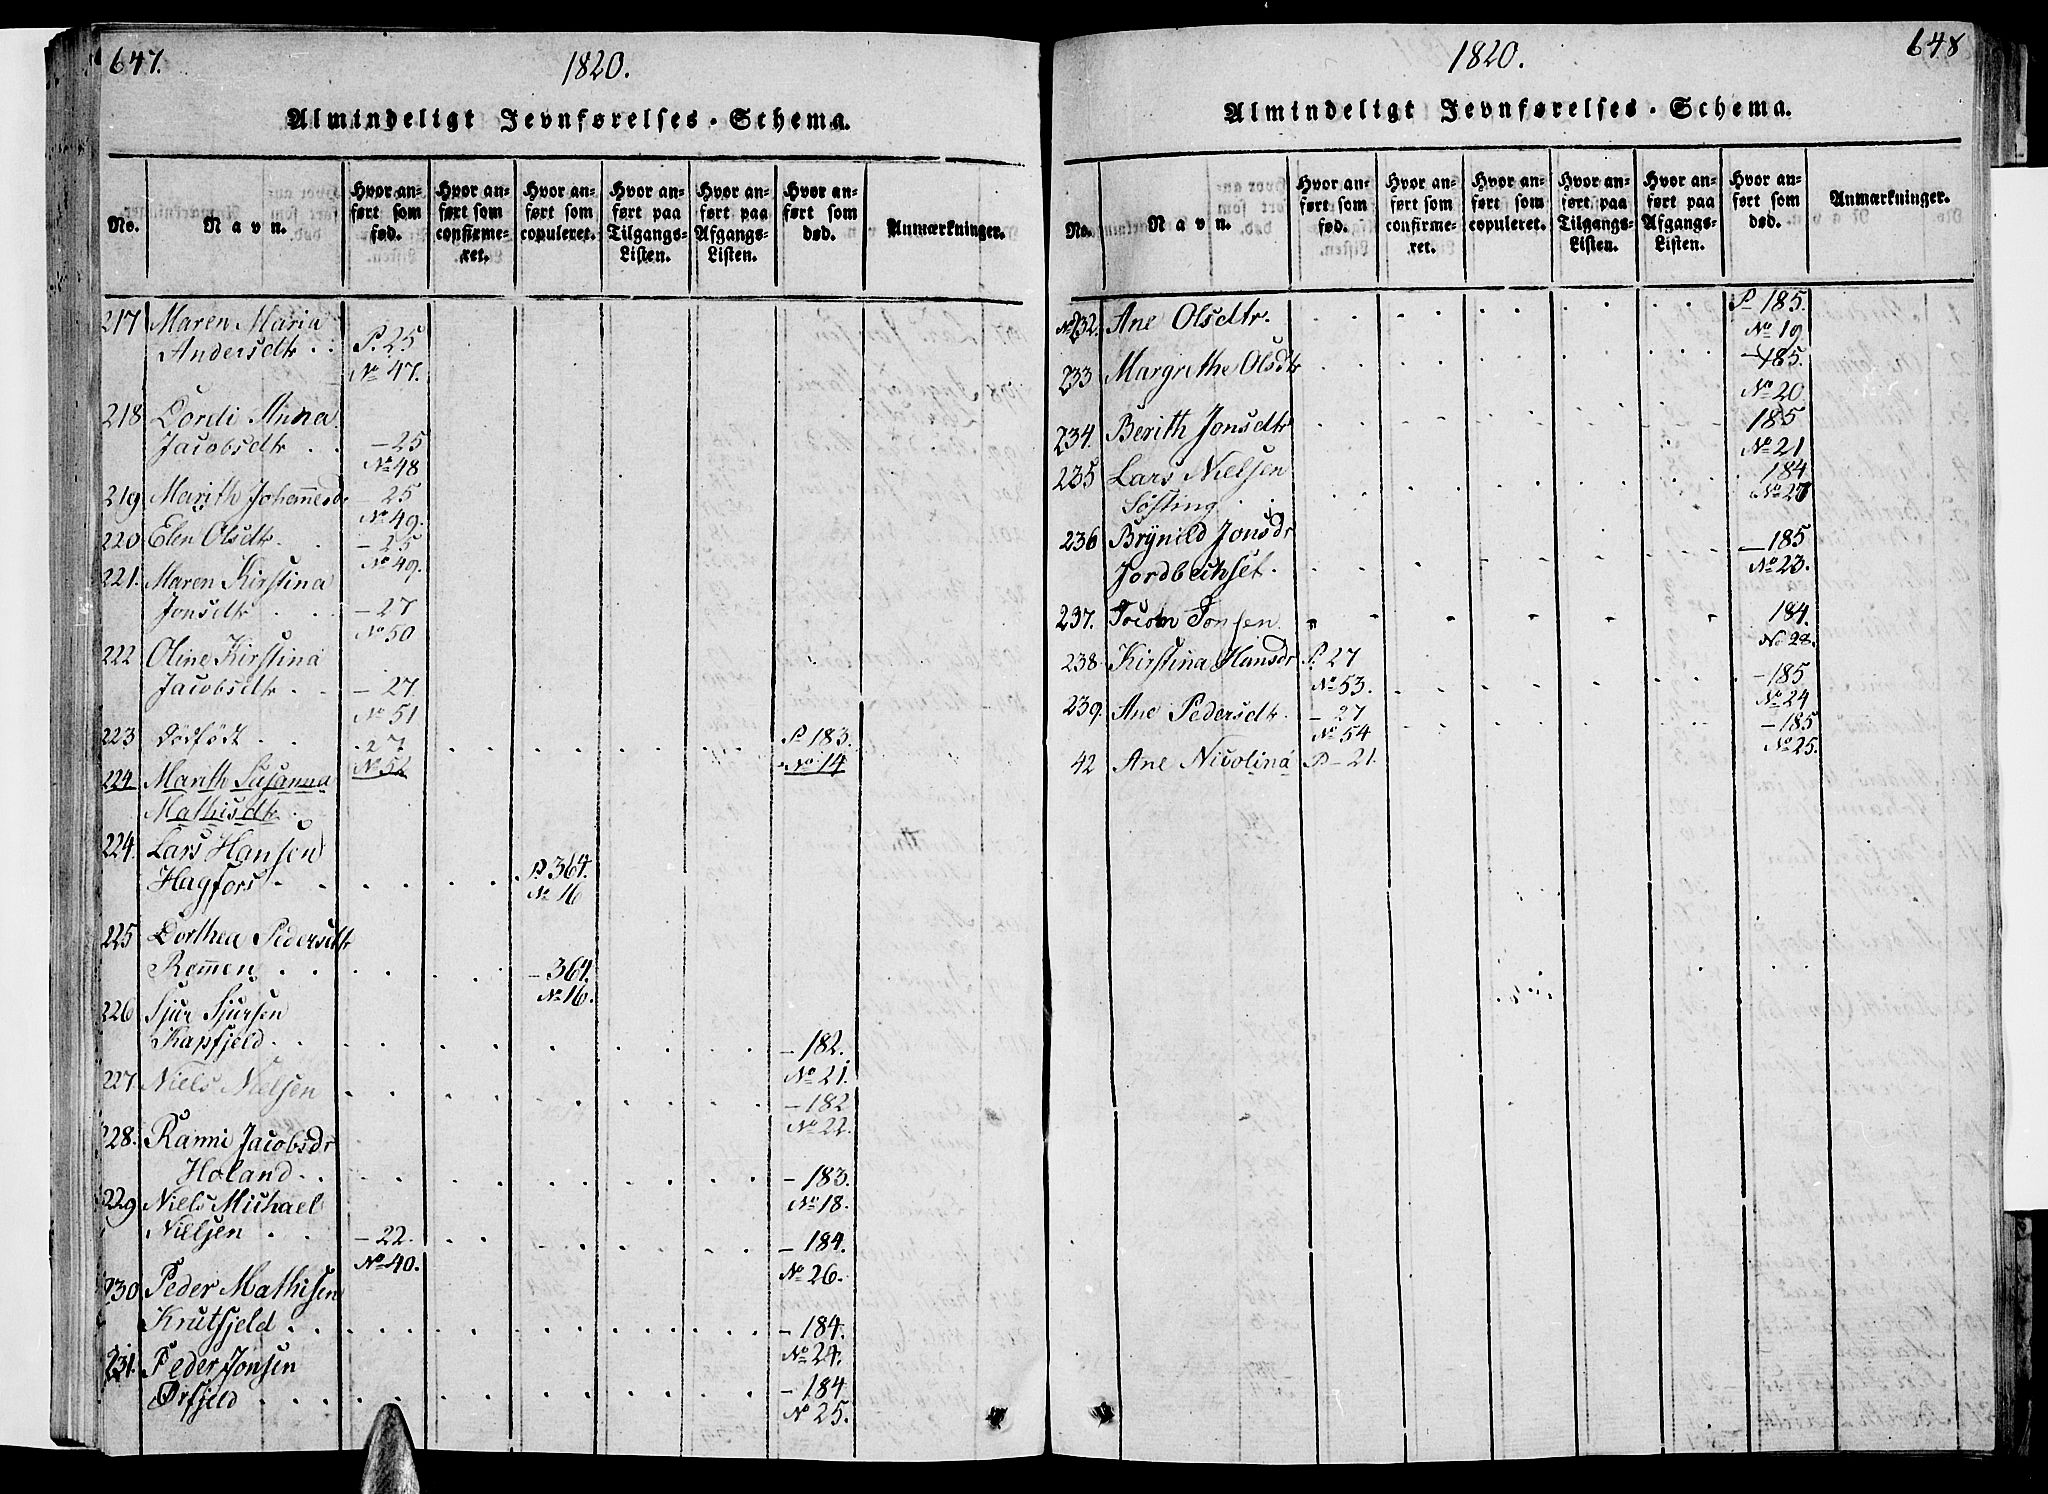 647.
1820.
Almindeligt Jevnførelses-Schema.
No.
Navn.
Hvor anført som fød.
Hvor anført som confirmeret.
Hvor anført som copuleret.
Hvor anført paa Tilgangs-Listen.
Hvor anført paa Afgangs-Listen.
Hvor anført som død.
Anmærkninger.
217 Maren Maria
Andersdtr . . P. 25
No 47.
218 Dordi Anna
Jacobsdtr . . – 25
No 48
219 Marith Johannesdr – 25
No 49.
220 Elen Olsdtr. – 25
No 49.
221. Maren Kirstina
Jonsdtr . . – 27
No 50
222 Oline Kirstina
Jacobsdtr . . – 27.
No 51
223 Dödfödt . . 27 P 183.
No 52 No 14
224 Marith Susanna
Mathisdtr.
224. Lars Hansen
Hagfors . P. 364.
No 16
225 Dorthea Pedersdtr
Remmen . . – 364.
No 16.
226 Sjur Sjursen
Kapfjeld . . – 182.
No 21.
227 Niels Nielsen – 182
No 22.
228. Ranni Jacobsdr
Holand . . – 183.
No 18.
229 Niels Michael
Nielsen . . – 22. – 184.
No 40. No 26.
230 Peder Mathisen
Krutfjeld . . – 184.
No 24.
231. Peder Jonsen
Ørfjeld . . – 184
No 25.
648
1820.
Almindeligt Jevnførelses-Schema.
No.
Navn.
Hvor anført som fød.
Hvor anført som confirmeret.
Hvor anført som copuleret.
Hvor anført paa Tilgangs-Listen.
Hvor anført paa Afgangs-Listen.
Hvor anført som død.
Anmærkninger.
No 232. Ane Olsdtr. P 185.
No 19
233 Margrethe Olsdtr – 185.
No 20
234. Berith Jonsdtr 185
No 21
235 Lars Nielsen 184
Søfting No 27
236 Brÿnild Jonsdr – 185
Jordbechset. No 23.
237. Jonsen 184.
No 28.
238 Kirstina Hansdr P. 27 – 185
No 53. No 24
239. Ane Pedersdtr. – 27 – 185
No 54 No 25.
42 Ane Nicolina P – 21.